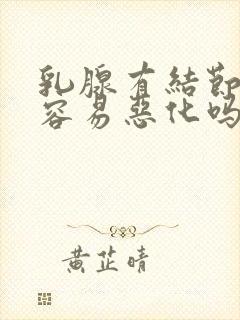 乳腺有結節
容易惡化嗎
黃芷晴